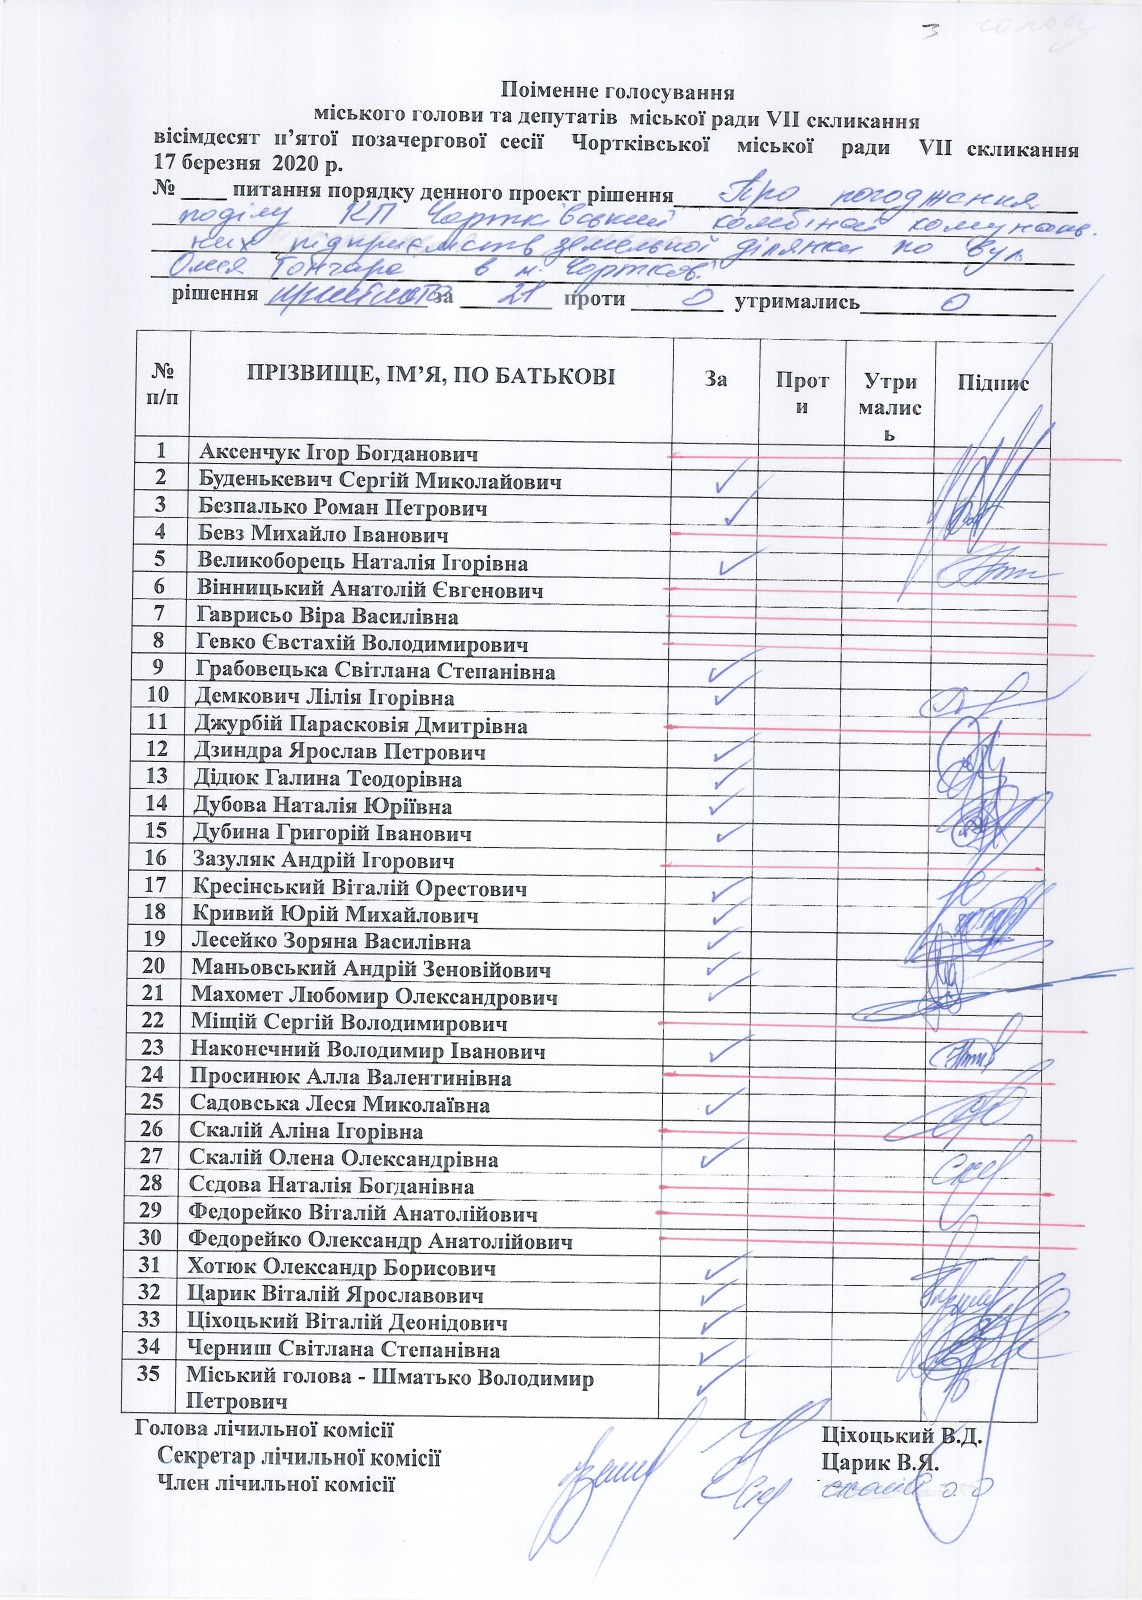 Поіменне голосування
міського голови та депутатів міської ради VII скликання
вісімдесят п’ятої позачергової сесії Чортківської міської ради VII скликання
17 березня 2020 р.
№ ____ питання порядку денного проект рішення Про погодження
поділу КП Чортківський комбінат комуналь-
них підприємств земельної ділянки по вул.
Олеся Гончара в м. Чорткові
рішення прийнято за 21 проти 0 утримались 0
№ п/п ПРІЗВИЩЕ, ІМ’Я, ПО БАТЬКОВІ За Проти Утримались Підпис
1 Аксенчук Ігор Богданович
2 Буденькевич Сергій Миколайович ✓
3 Безпалько Роман Петрович ✓
4 Бевз Михайло Іванович
5 Великоборець Наталія Ігорівна ✓
6 Вінницький Анатолій Євгенович
7 Гаврисьо Віра Василівна
8 Гевко Євстахій Володимирович
9 Грабовецька Світлана Степанівна ✓
10 Демкович Лілія Ігорівна ✓
11 Джурбій Парасковія Дмитрівна
12 Дзиндра Ярослав Петрович ✓
13 Дідюк Галина Теодорівна ✓
14 Дубова Наталія Юріївна ✓
15 Дубина Григорій Іванович ✓
16 Зазуляк Андрій Ігорович
17 Кресінський Віталій Орестович ✓
18 Кривий Юрій Михайлович ✓
19 Лесейко Зоряна Василівна ✓
20 Маньовський Андрій Зеновійович ✓
21 Махомет Любомир Олександрович ✓
22 Міщій Сергій Володимирович
23 Наконечний Володимир Іванович ✓
24 Просинюк Алла Валентинівна
25 Садовська Леся Миколаївна ✓
26 Скалій Аліна Ігорівна
27 Скалій Олена Олександрівна ✓
28 Сєдова Наталія Богданівна
29 Федорейко Віталій Анатолійович
30 Федорейко Олександр Анатолійович
31 Хотюк Олександр Борисович ✓
32 Царик Віталій Ярославович ✓
33 Ціхоцький Віталій Деонідович ✓
34 Черниш Світлана Степанівна ✓
35 Міський голова - Шматько Володимир ✓
Петрович
Голова лічильної комісії Ціхоцький В.Д.
Секретар лічильної комісії Царик В.Я.
Член лічильної комісії Скалій О.О